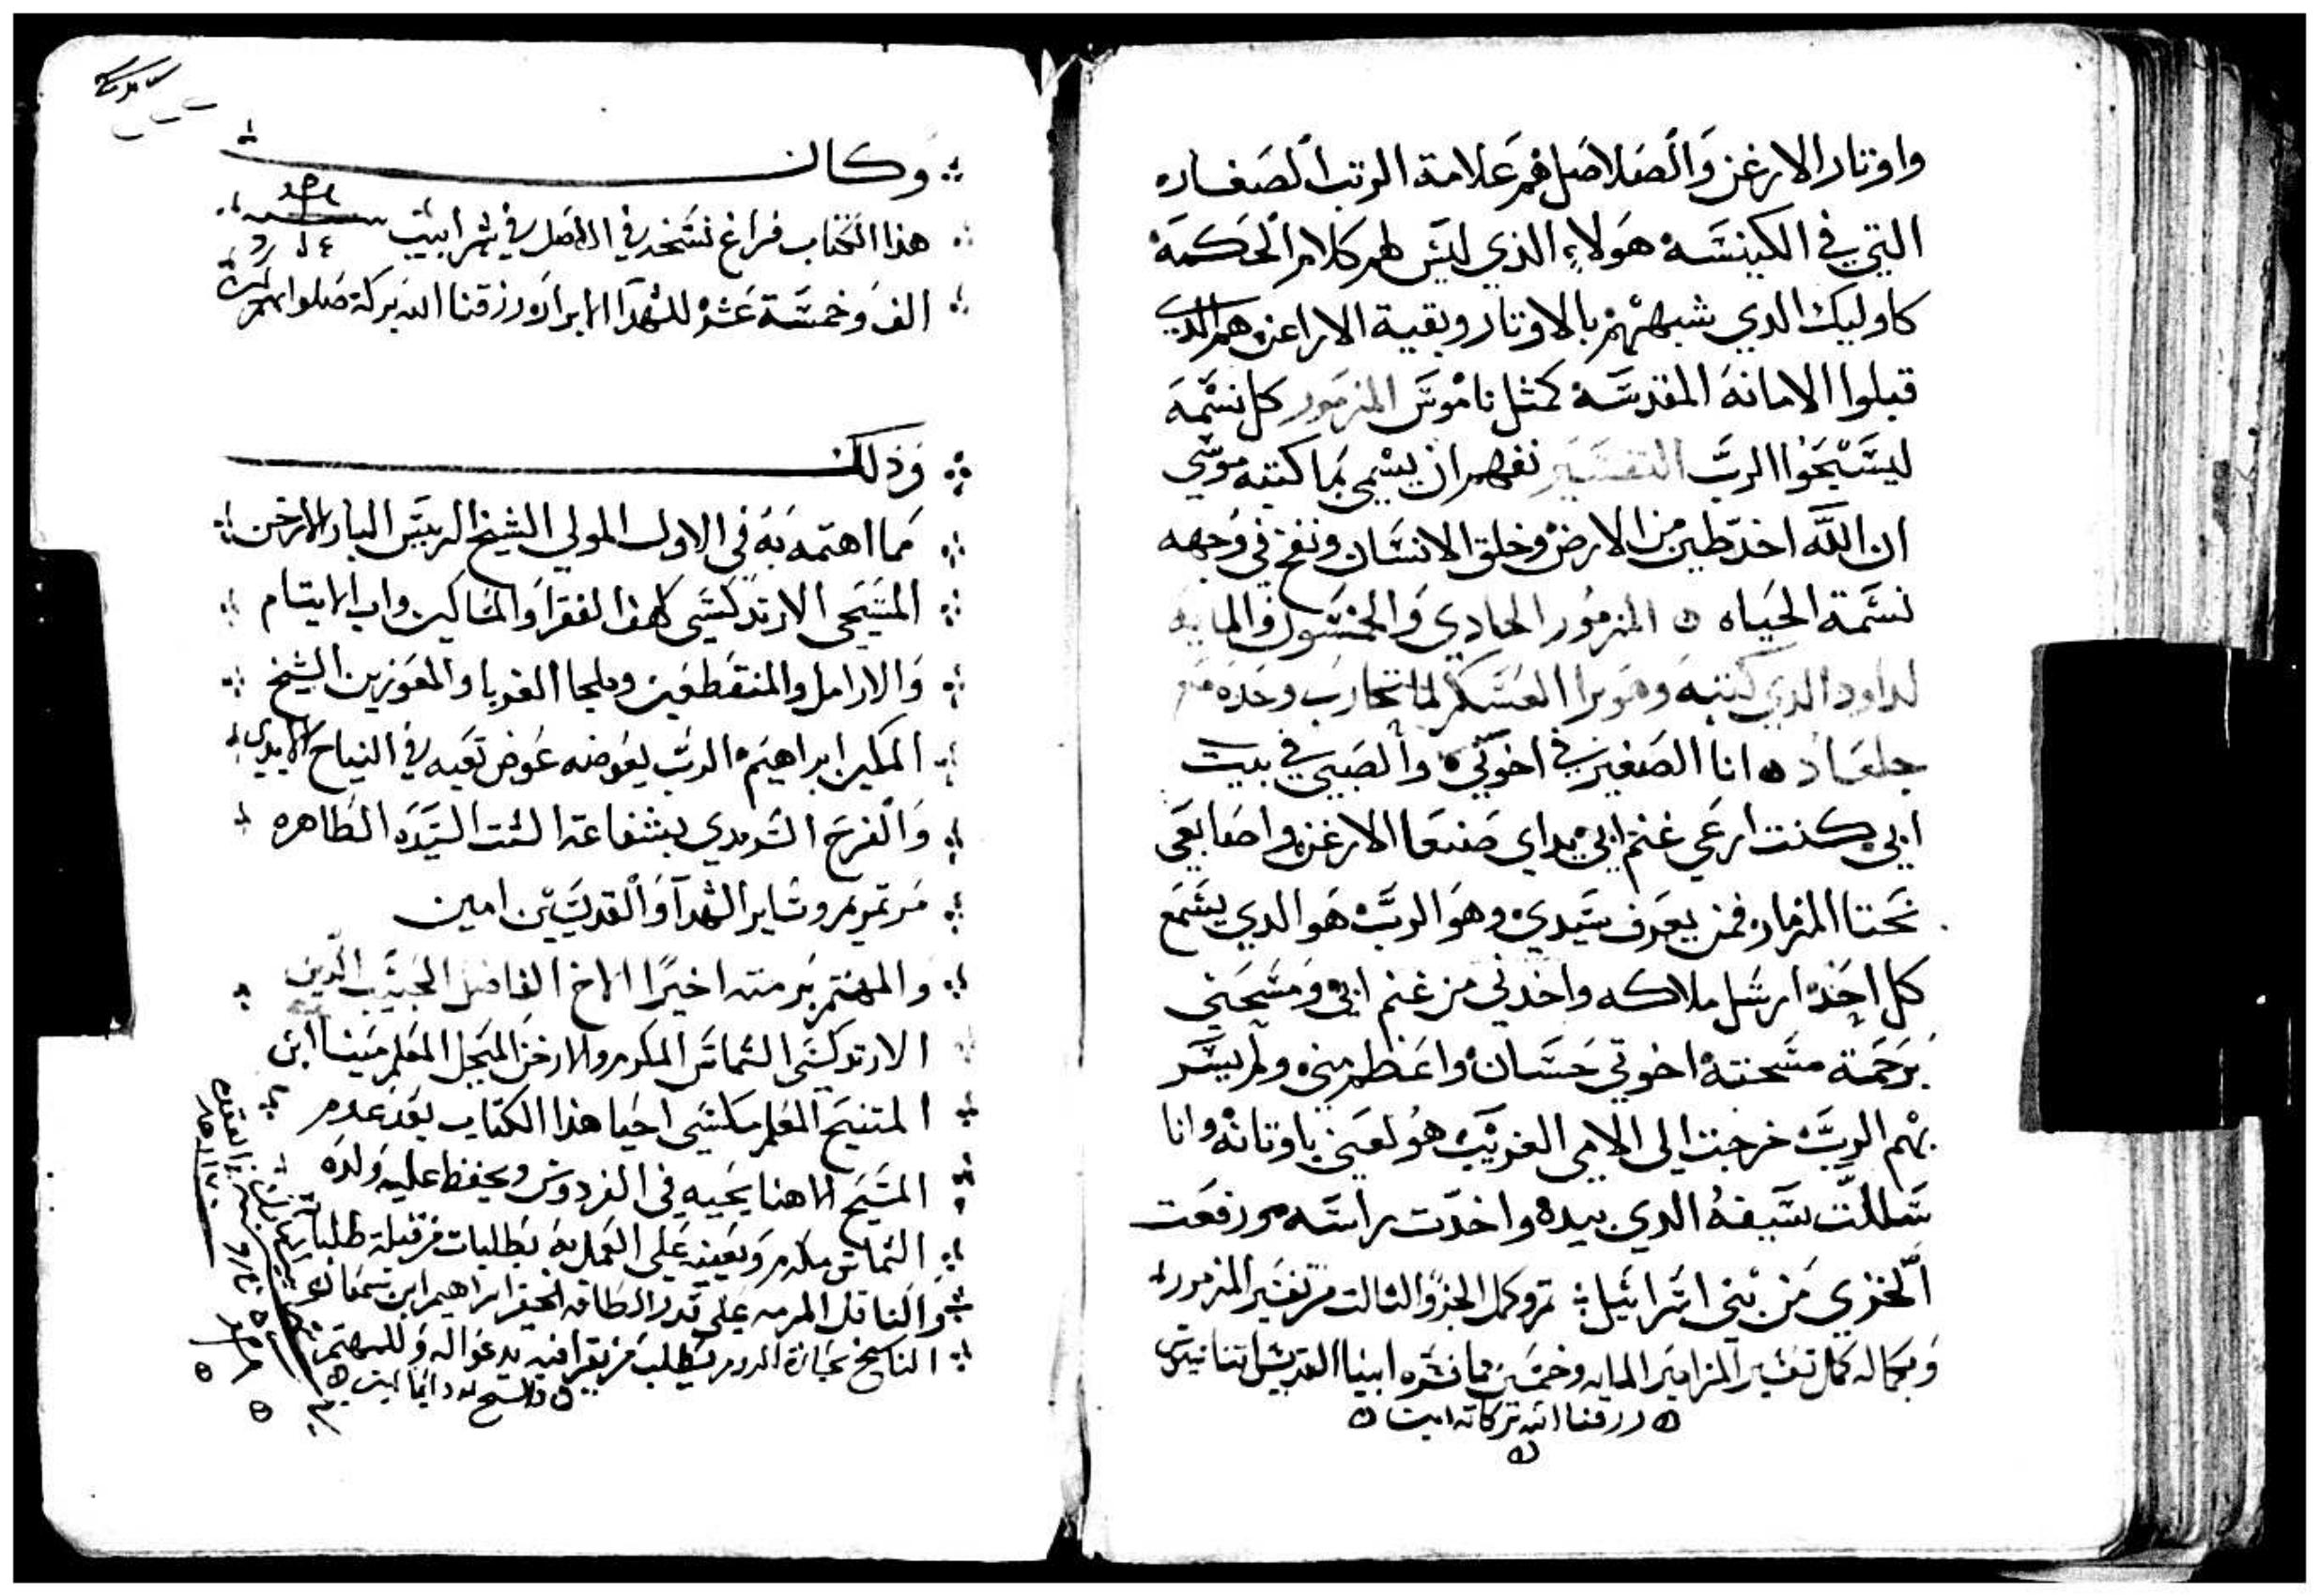 واوتار الارغن والصلاصل هم علامة الرتب الصغار
التي في الكينسه هولاء الذي ليس لهم كلام الحكمة
كاوليك الدي شبهتهم بالاوتار وبقية الاراغن هم الدي
قبلوا الامانه المقدسه كمثل ناموس المزمور كل نسمه
ليسبحوا الرب التفسير نفهم ان يسمي بما كتبه موسي
ان الله اخد طين من الارض وخلق الانسان ونفخ في وجهه
نسمة الحياه المزمور الحادي والخمسون والمايه
لداود الدي كتبه وهو برا العسكر لما تحارب وحده مع
جلعاد انا الصغير في اخوتي والصبي في بيت
ابي كنت ارعي غنم ابي يداي صنعا الارغن واصابعي
نحتا المزمار فمن يعرف سيدي وهو الرب هو الدي يسمع
كل احد ارسل ملاكه واخدني من غنم ابي ومسحني
برحمة مسحته اخوتي حسان واعظم مني ولم يسر
بهم الرب خرجت الي الامي الغريب هو لعني باوتانه وانا
سللت سيفه الدي بيده واخدت راسه ورفعت
الخزي من بني اسراييل تم وكمل الجزو الثالت من تفسير المزمور
وبكماله كمل تفسير المزامير المايه وخمسين مما فسره ابينا القديس اتناسيوس
رزقنا الله بركاته امين
وكان
هذا الكتاب فراغ نسخه في الاصل في شهر ابيب
الف وخمسة عشر للشهدآ الابرار ورزقنا الله بركة صلواتهم امين
وذلك
مما اهتم به في الاول المولي الشيخ الرييس البار الارخن
المسيحي الارتدكسي كهف الفقرا والمساكين واب الايتام
والارامل والمنقطعين وملجا الغربا والمعوزين الشيخ
المكين ابراهيم الرب يعوضه عوض تعبه في النياح الابدي
والفرح السرمدي بشفاعة الست السيده الطاهره
مرتمريم وساير الشهدآ والقديسين امين
والمهتم برمته اخيرًا الاخ الفاضل الحبيب الدين
الارتدكسي الشماس المكرم والارخن المبجل المعلم مينا ابن
المتنيح المعلم مكسي احيا هذا الكتاب بعد عدم
المسيح الاهنا يحييه في الفردوس ويحفظ عليه ولده
الشماس مكرم ويعينه علي العمل به بطلبات من قبلة طلباتهم
والناقل المرمه علي قدر الطاقه الحقير ابراهيم ابن سمعان
الناسخ بحارة الروم يطلب من يقرا فيه يدعوا له وللمهتم
والسبح لله دايمًا ابدا